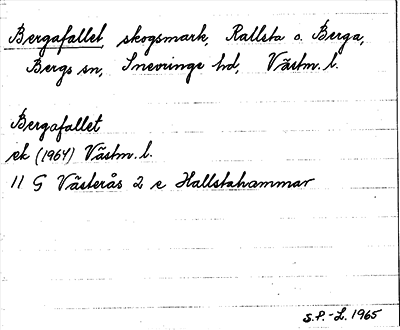 Bergafallet skogsmark, Rallsta o. Berga,
Bergs sn, Snevringe hd, Västm. l.
Bergafallet
ek (1964) Västm. l.
11 G Västerås 2 e Hallstahammar
S.P.-L. 1965